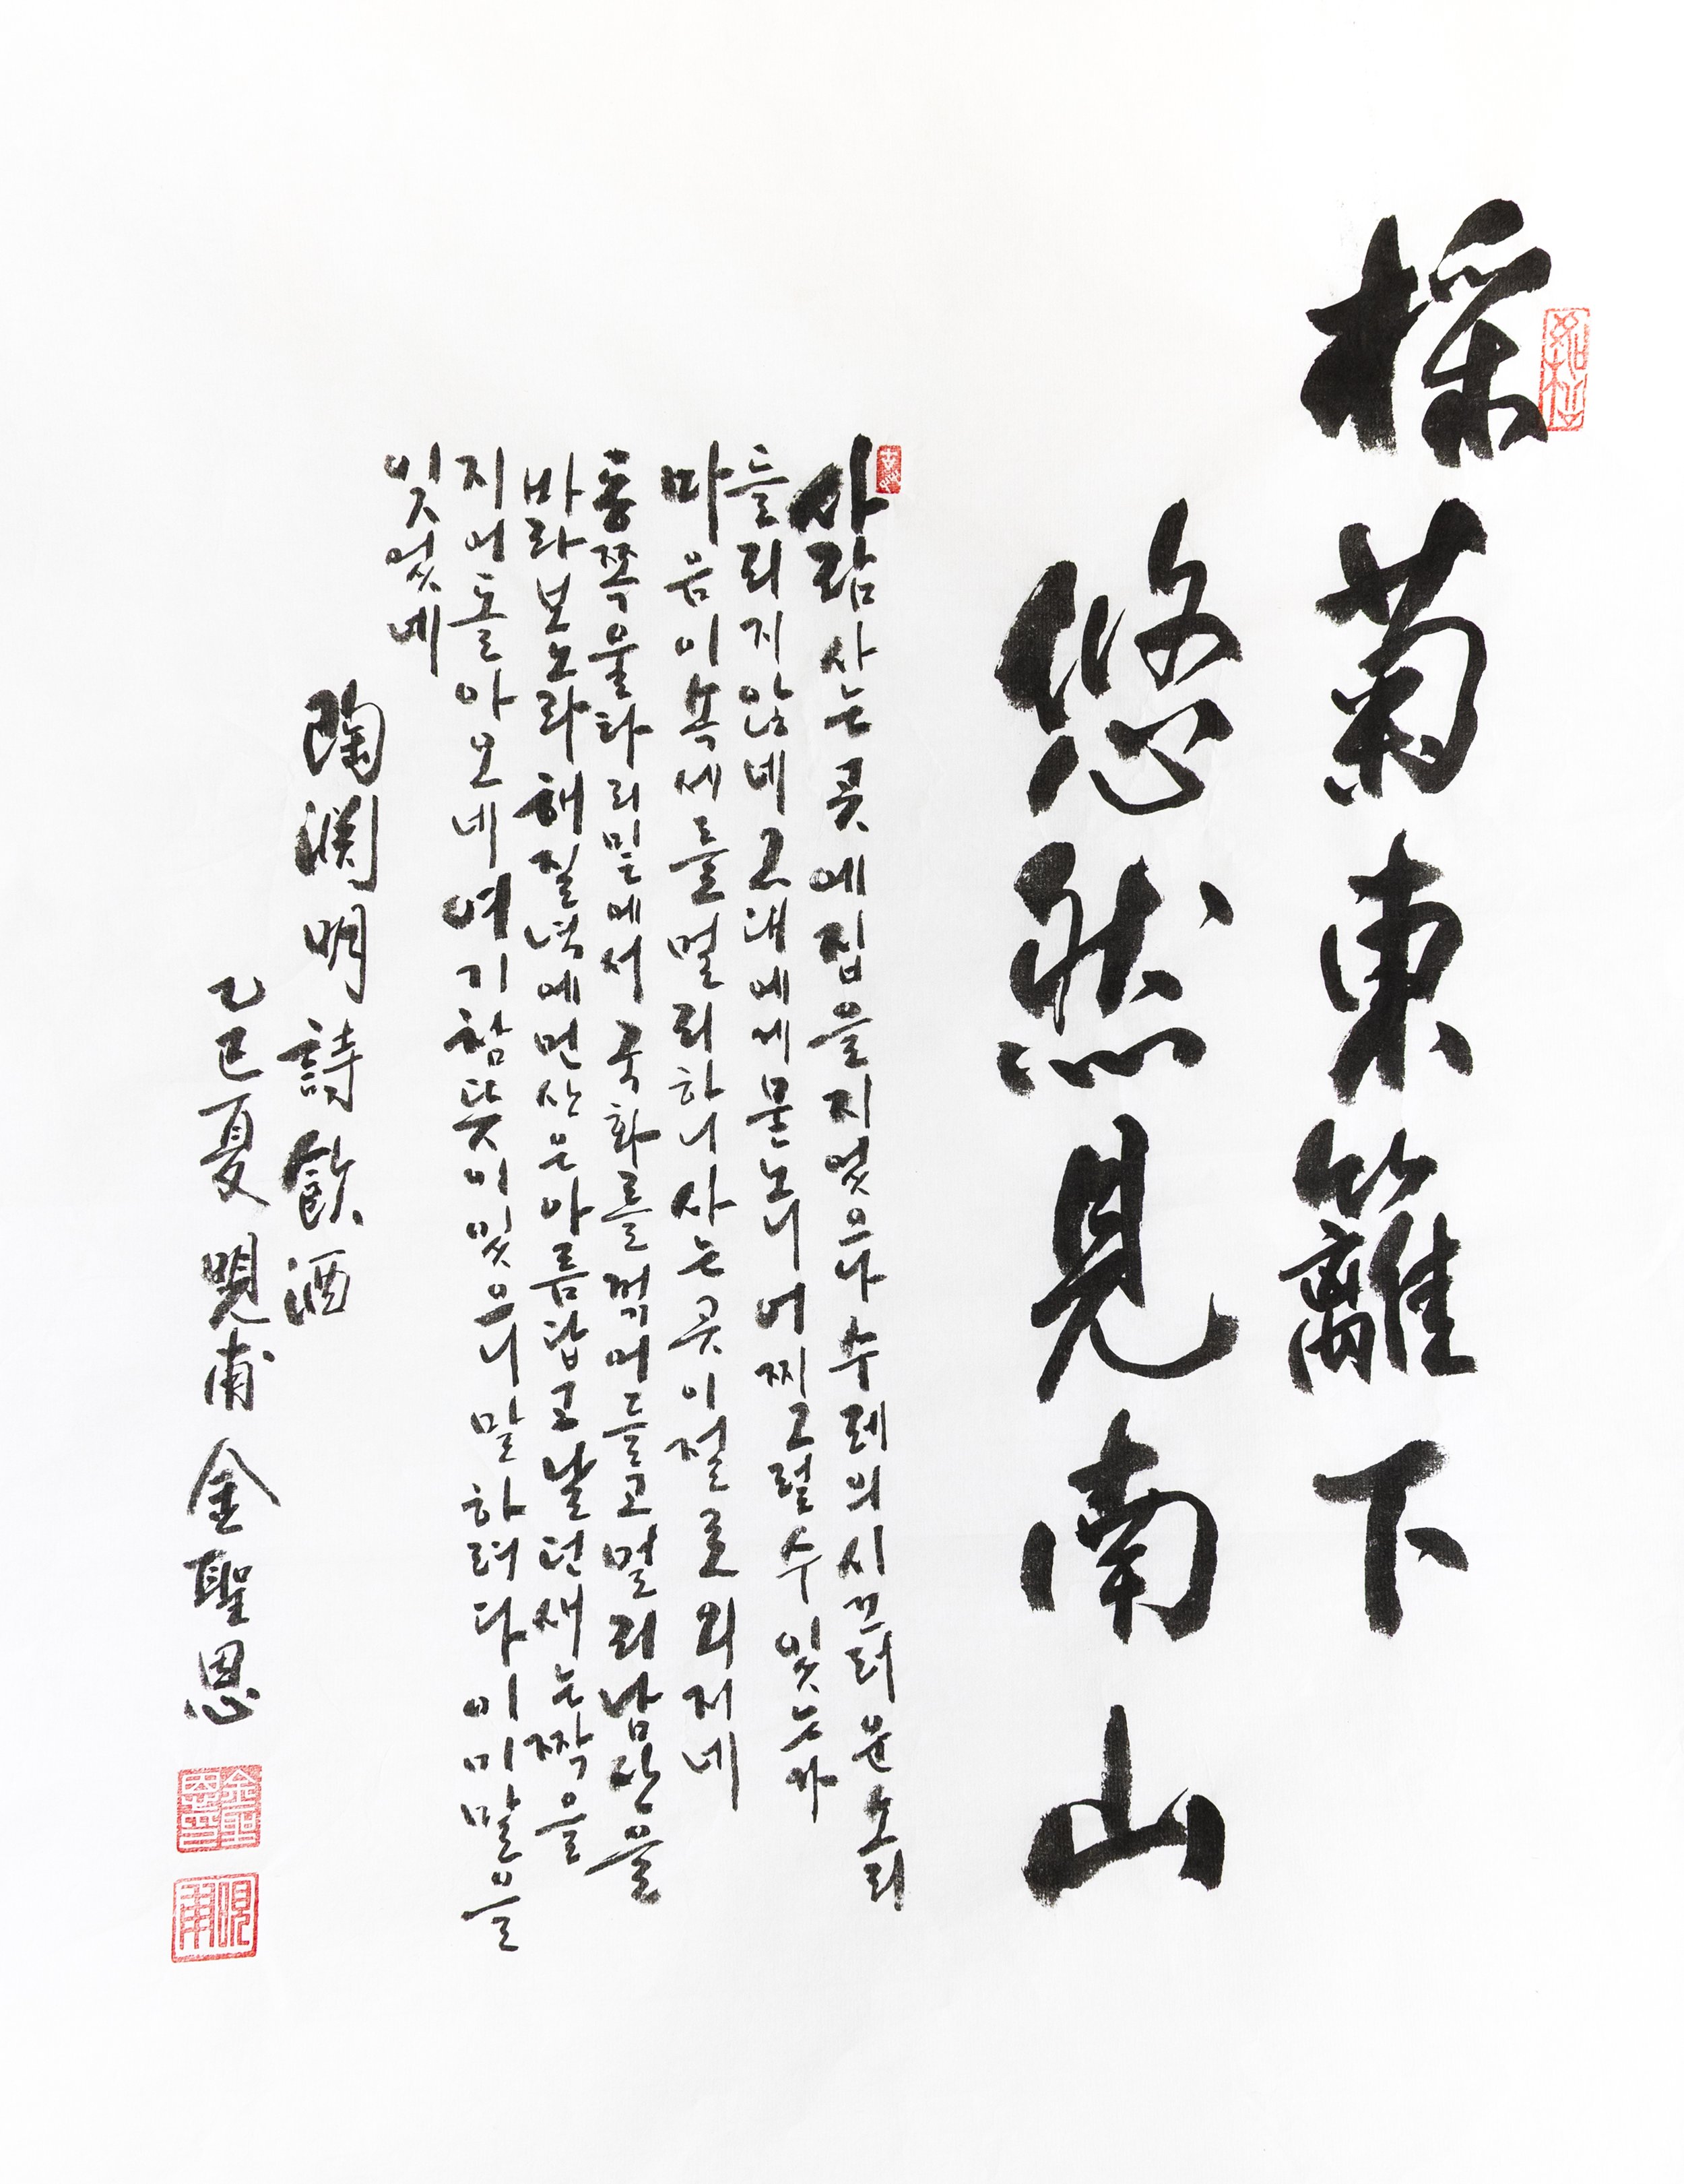 採菊東籬下
悠然見南山
사람 사는 곳에 집을 지었으나 수레의 시끄러운 소리
들리지 않네 그대에게 묻노니 어찌 그럴 수 있는가
마음이 속세를 멀리하니 사는 곳이 절로 외저네
동쪽 울타리 밑에서 국화를 꺾어들고 멀리 남산을
바라보노라 해질녘에 먼 산은 아름답고 날던 새는 짝을
지어 돌아오네 여기 참뜻이 있으니 말하려다 이미 말을
잊었네
陶渕明詩飮酒
乙巳夏 甫 金聖恩